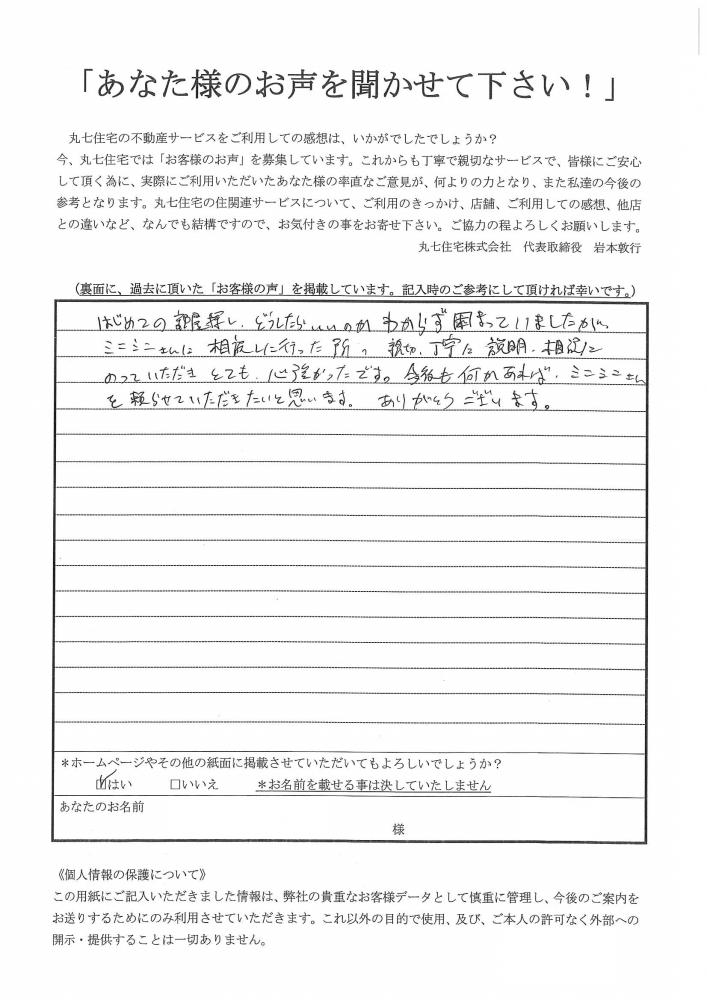 「あなた様のお声を聞かせて下さい！」
丸七住宅の不動産サービスをご利用しての感想は、いかがでしたでしょうか？
今、丸七住宅では「お客様のお声」を募集しています。これからも丁寧で親切なサービスで、皆様にご安心
して頂く為に、実際にご利用いただいたあなた様の率直なご意見が、何よりの力となり、また私達の今後の
参考となります。丸七住宅の住関連サービスについて、ご利用のきっかけ、店舗、ご利用しての感想、他店
との違いなど、なんでも結構ですので、お気付きの事をお寄せ下さい。ご協力の程よろしくお願いします。
丸七住宅株式会社　代表取締役　岩本敦行
（裏面に、過去に頂いた「お客様の声」を掲載しています。記入時のご参考にして頂ければ幸いです。）
はじめての部屋探し、どうしたらいいのか わからず 困まっていましたが、
ミニミニさんに 相談しに行った 所、親切、丁寧に 説明、相談に
のっていただき とても 心強かったです。 今後も 何かあれば、ミニミニさん
を 頼らせていただきたいと思います。 ありがとうございます。
＊ホームページやその他の紙面に掲載させていただいてもよろしいでしょうか？
☑はい　□いいえ　＊お名前を載せる事は決していたしません
あなたのお名前
様
《個人情報の保護について》
この用紙にご記入いただきました情報は、弊社の貴重なお客様データとして慎重に管理し、今後のご案内を
お送りするためにのみ利用させていただきます。これ以外の目的で使用、及び、ご本人の許可なく外部への
開示・提供することは一切ありません。